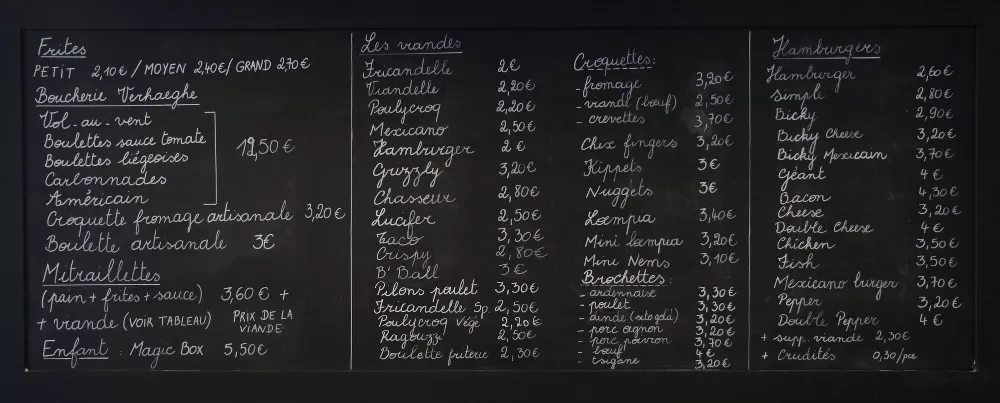 Frites
PETIT 2,10€ / MOYEN 2,40€ / GRAND 2,70€
Boucherie Verhaeghe
Vol-au-vent
Boulettes sauce tomate
Boulettes liégeoises
Carbonnades
Américain
12,50€
Croquette fromage artisanale 3,20€
Boulette artisanale 3€
Mitraillettes
(pain + frites + sauce) 3,60€ +
+ viande (VOIR TABLEAU) PRIX DE LA VIANDE
Enfant : Magic Box 5,50€
Les viandes
Fricandelle 2€
Viandelle 2,20€
Poulycroq 2,20€
Mexicano 2,50€
Hamburger 2€
Gruzzly 3,20€
Chasseur 2,80€
Lucifer 2,50€
Taco 3,30€
Crispy 2,80€
B'Ball 3€
Pilons poulet 3,30€
Fricandelle Sp. 2,50€
Poulycroq Végé 2,20€
Ragouzi 2,50€
Boulette friterie 2,30€
Croquettes:
- fromage 3,20€
- viande (bœuf) 2,50€
- crevettes 3,70€
Chix fingers 3,20€
Kippets 3€
Nuggets 3€
Loempia 3,40€
Mini loempia 3,20€
Mini Nems 3,10€
Brochettes:
- ardennaise 3,30€
- poulet 3,30€
- dinde 3,20€
- porc oignon 3,20€
- porc poivron 3,70€
- bœuf 4€
- tsigane 3,20€
Hamburgers
Hamburger 2,60€
Simple 2,80€
Bicky 2,90€
Bicky Cheese 3,20€
Bicky Mexicain 3,70€
Géant 4€
Bacon 4,30€
Cheese 3,20€
Double Cheese 4€
Chicken 3,50€
Fish 3,50€
Mexicano burger 3,70€
Pepper 3,20€
Double Pepper 4€
+ supp. viande 2,30€
+ Crudités 0,30/pce